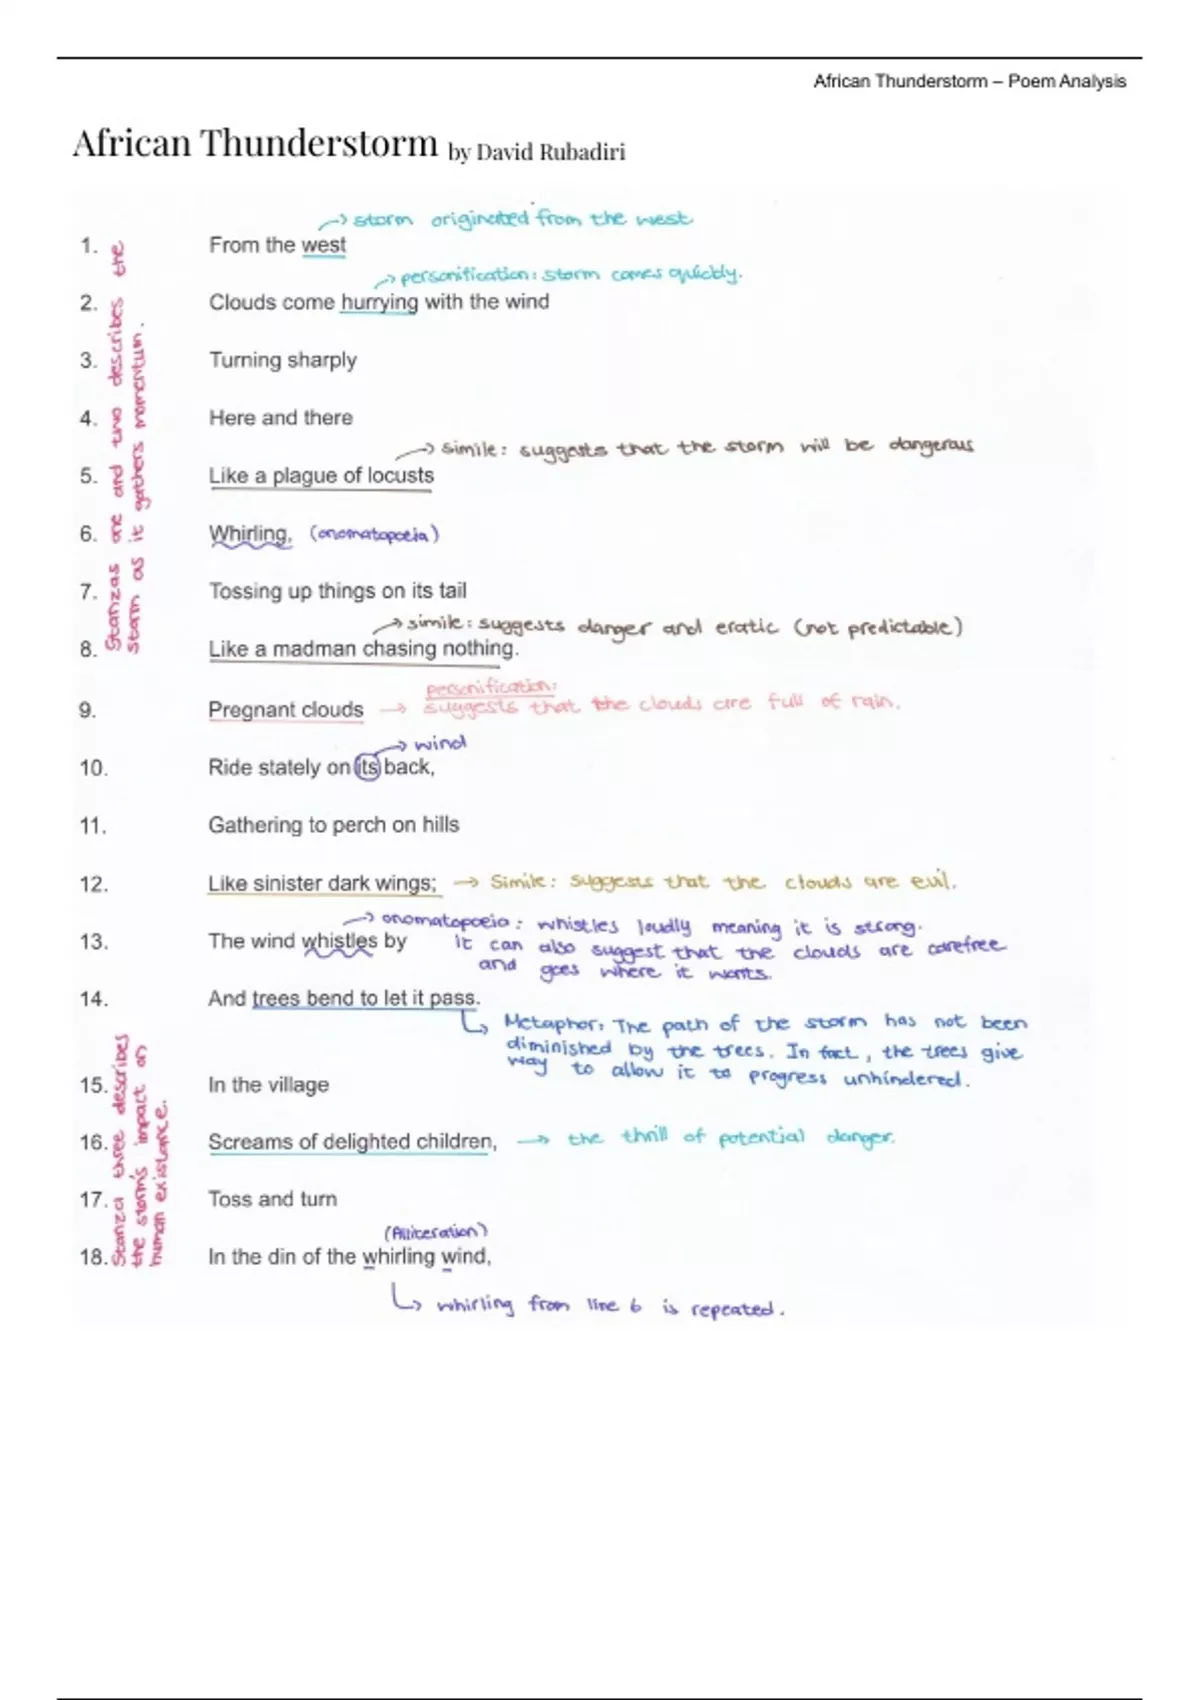 African Thunderstorm – Poem Analysis
African Thunderstorm by David Rubadiri
storm originated from the west
1. From the west
personification: storm comes quickly.
2. Clouds come hurrying with the wind
3. Turning sharply
4. Here and there
simile: suggests that the storm will be dangerous
5. Like a plague of locusts
6. Whirling, (onomatopoeia)
7. Tossing up things on its tail
simile: suggests danger and eratic (not predictable)
8. Like a madman chasing nothing.
Stanzas one and two describes the
storm as it gathers momentum.
personification:
9. Pregnant clouds → suggests that the clouds are full of rain.
wind
10. Ride stately on its back,
11. Gathering to perch on hills
12. Like sinister dark wings; → Simile: suggests that the clouds are evil.
onomatopoeia: whistles loudly meaning it is strong.
13. The wind whistles by it can also suggest that the clouds are carefree
and goes where it wants.
14. And trees bend to let it pass.
Metaphor: The path of the storm has not been
diminished by the trees. In fact, the trees give
way to allow it to progress unhindered.
15. In the village
16. Screams of delighted children, → the thrill of potential danger.
17. Toss and turn
(Alliteration)
18. In the din of the whirling wind,
Stanza three describes
the storm's impact on
human existance.
whirling from line 6 is repeated.